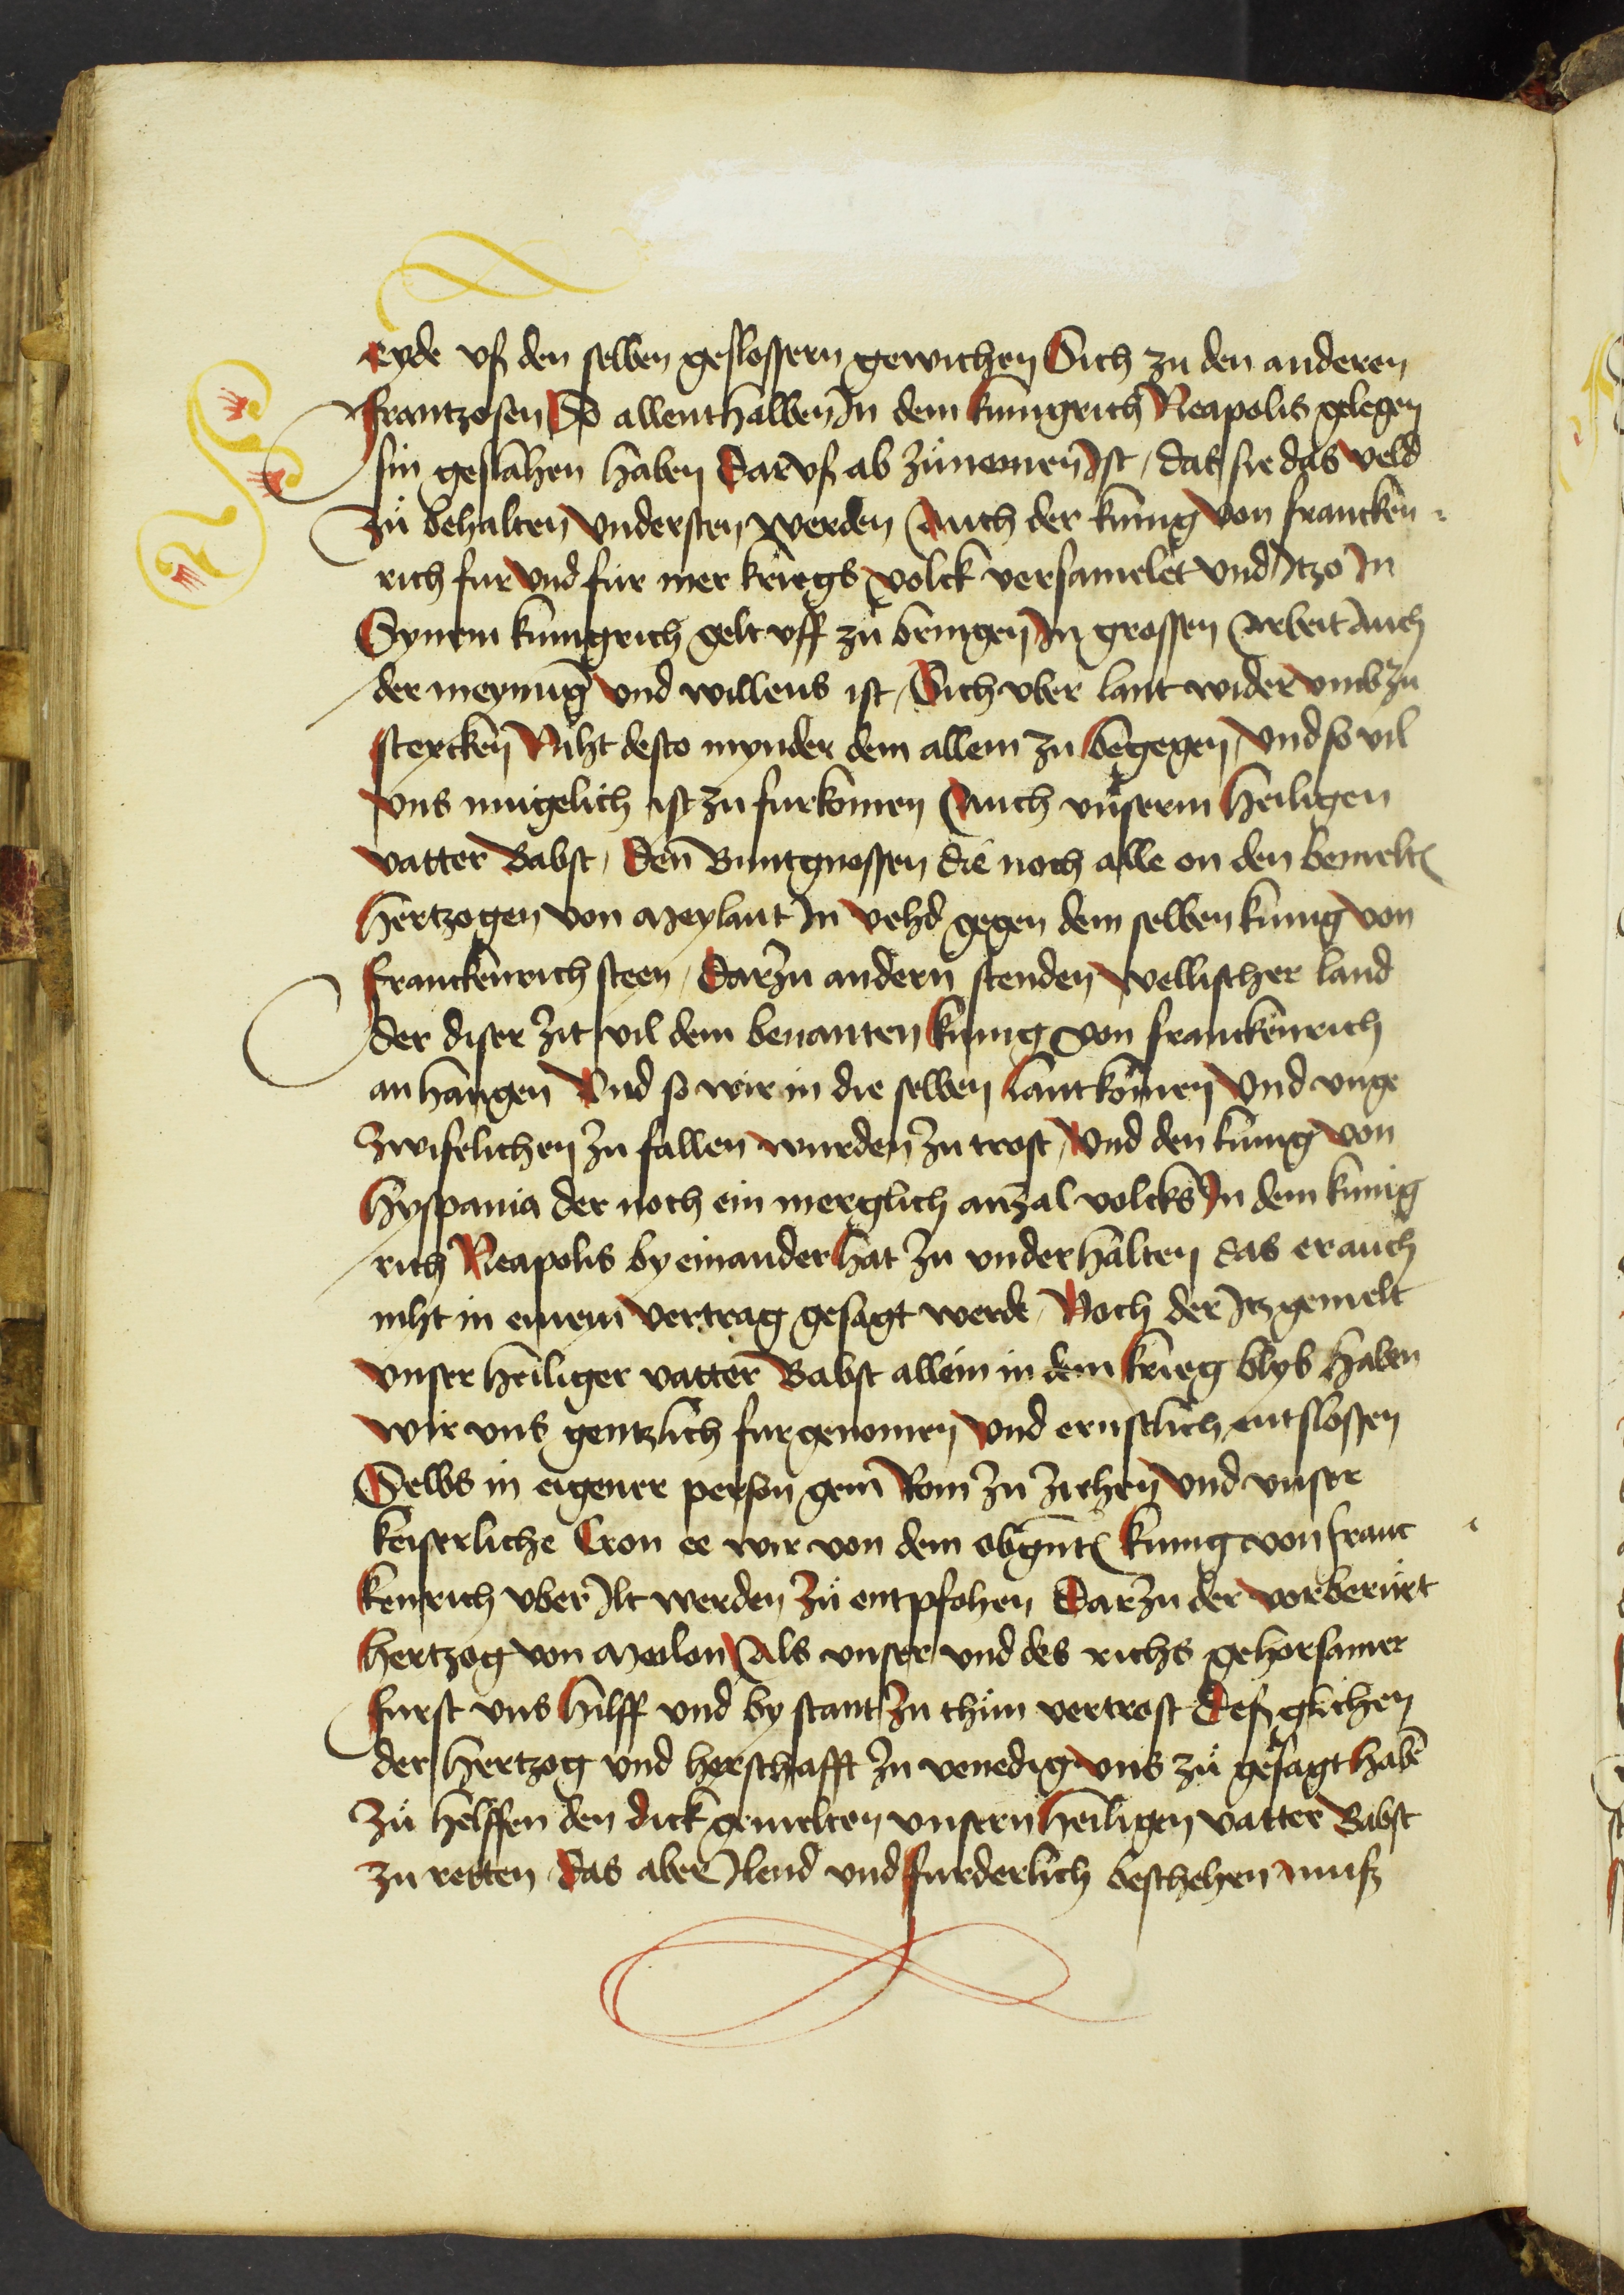 eyde usß den selben geslossern gewichen Sich zu den anderen
frantzosen So allenthalben In dem kunigrich Neapolis gelegen
sin geslahen haben Darusß ab zůnemen Ist / das sie das veld
zů behalten understen werden Auch der kunig von francken
rich fur und fur mer kriegs volck versamelet und Itzo In
Synem kunigrich gelt uff zů bringen In grossen arbeit Auch
der meynung und willens ist / Sich uber lant wider umb zu
stercken Niht desto mynder dem allem zu begegen / und so vil
uns mugelich ist zu furkomen Auch unserm Heiligen
vatter Babst / Den Buntgnossen die noch alle on den bemelt
Hertzogen von Meylant In vehd gegen dem selben kunig von
franckenrich steen / Darzu andern stenden wellischer land
der diser zit vil dem benanten kunig von franckenrich
anhangen Und so wir in die selben lant komen Und unge
zwifelichen zu fallen wurden zu trost / Und den kunig von
Hyspania der noch ein merglich anzal volcks In dem kunig
rich Neapolis by einander hat zu underhalten das er auch
niht in einem vertrag gesagt werde / Noch der Itzgemelt
unser heiliger vatter Babst allein in dem krieg blyb haben
wir uns gentzlich fur genomen und ernstlich entslossen
Selbs in eigener person gein Rom zu ziehen und unser
keiserliche Cron ee wir von dem obgnt kunig von franc
kenrich uber Ilt werden zů entpfohen Darzu der vorberürt
hertzog von Meilon Als unser und des richs gehorsamer
furst uns hilff und by stant zu thůn vertrost Desß glichen
der Hertzog und herschafft zu venedig uns zů gesagt haben
zů helffen den dick gemelten unsern heiligen vatter Babst
zu retten Das aber Ilend und furderlich beschehen muß